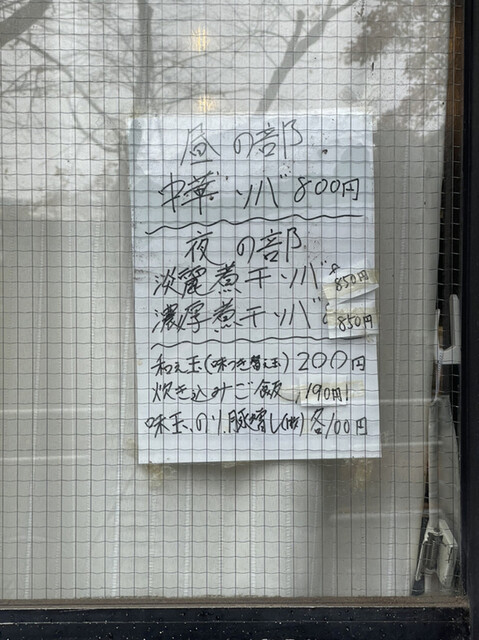 昼の部
中華ソバ 800円
夜の部
淡麗煮干ソバ 850円
濃厚煮干ソバ 850円
和え玉(味つき替え玉) 200円
炊き込みご飯 190円
味玉、のり、豚増し 各100円